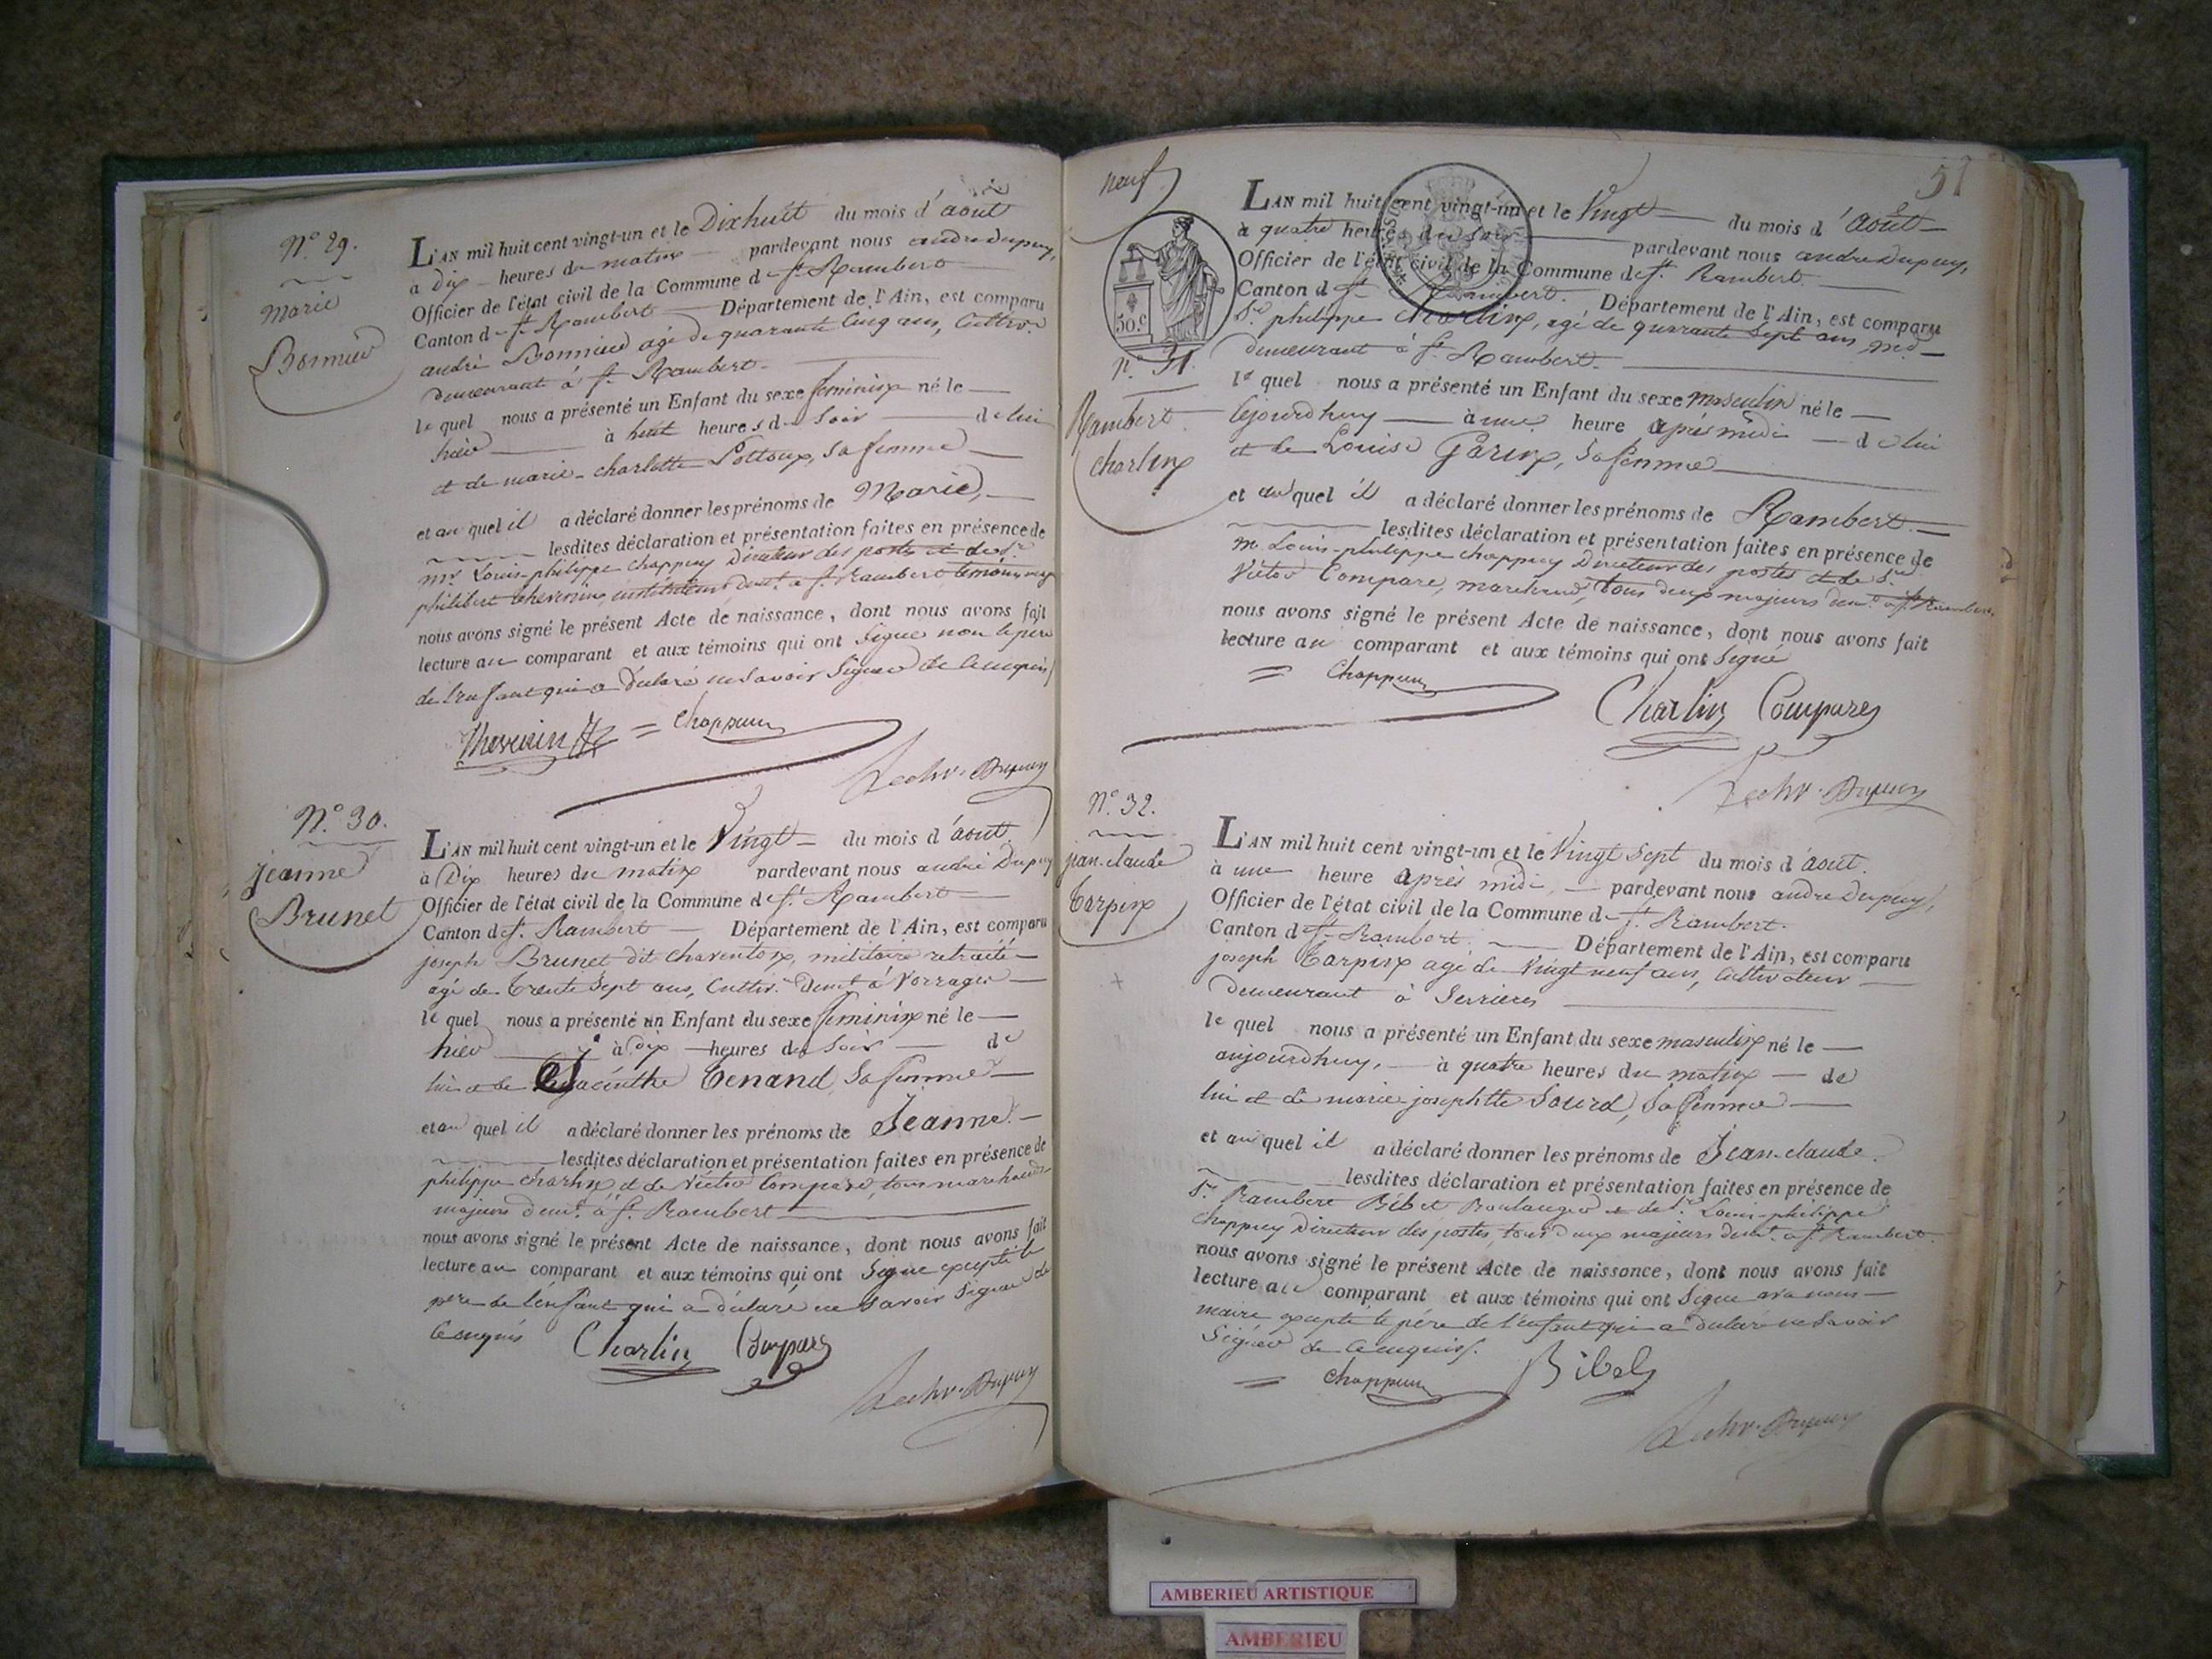 N.º 29.
Marie
Bonnier
L'AN mil huit cent vingt-un et le Dixhuit du mois d'aout
a dix heures du matin pardevant nous andré dupuy,
Officier de l'état civil de la Commune de St Rambert
Canton de St Rambert Département de l'Ain, est comparu
andré Bonnier agé de quarante cinq ans, cultivr
demeurant à St Rambert
le quel nous a présenté un Enfant du sexe feminin né le
hier à huit heures du soir de lui
et de marie-charlotte Pottoux, sa femme
et au quel il a déclaré donner les prénoms de Marie,
lesdites déclaration et présentation faites en présence de
mr Louis-philippe chappuy Directeur des postes et de Sr
philibert thevenin, instituteur demt a St Rambert temoins
nous avons signé le présent Acte de naissance, dont nous avons fait
lecture au comparant et aux témoins qui ont signé non le pere
de l'enfant qui a déclaré ne savoir signer de ce requis
Thevenin = Chappuy
Dupuy
N.º 30.
jeanne
Brunet
L'AN mil huit cent vingt-un et le Vingt du mois d'aout
à Dix heures du matin pardevant nous andré Dupuy
Officier de l'état civil de la Commune de St Rambert
Canton de St Rambert Département de l'Ain, est comparu
joseph Brunet dit charenton, militaire retraité
agé de trente sept ans, cultivr demt à Vorrages
le quel nous a présenté un Enfant du sexe feminin né le
hier à dix heures du soir de
lui et de hyacinthe Tenand, sa femme
et au quel il a déclaré donner les prénoms de Jeanne.
lesdites déclaration et présentation faites en présence de
philippe charlin et de victor Compare, tous marchands
majeurs demt à St Rambert
nous avons signé le présent Acte de naissance, dont nous avons fait
lecture au comparant et aux témoins qui ont signé excepté le
pere de l'enfant qui a déclaré ne savoir signer de
ce requis Charlin Compare
Dupuy
neuf
51
50.c
n.º 31.
Rambert
charlin
L'AN mil huit cent vingt-un et le Vingt du mois d'Août
à quatre heures du soir pardevant nous andré Dupuy,
Officier de l'état civil de la Commune de St Rambert.
Canton de St Rambert. Département de l'Ain, est comparu
Sr philippe Charlin, agé de quarante sept ans md
demeurant à St Rambert
le quel nous a présenté un Enfant du sexe masculin né le
cejourdhuy à une heure après midi de lui
et de Louise Garin, sa femme
et au quel il a déclaré donner les prénoms de Rambert.
lesdites déclaration et présentation faites en présence de
m. Louis-philippe chappuy Directeur des postes et de Sr
Victor Compare, marchand, tous deux majeurs demt a St Rambert
nous avons signé le présent Acte de naissance, dont nous avons fait
lecture au comparant et aux témoins qui ont signé
= Chappuy
Charlin Compare
Dupuy
N.º 32.
jean-claude
Carpin
L'AN mil huit cent vingt-un et le Vingt sept du mois d'aout.
à une heure après midi, pardevant nous andré Dupuy,
Officier de l'état civil de la Commune de St Rambert.
Canton de St Rambert. Département de l'Ain, est comparu
joseph Carpin agé de vingt neuf ans, cultivateur
demeurant à Serrieres
le quel nous a présenté un Enfant du sexe masculin né le
aujourdhuy, à quatre heures du matin de
lui et de marie josephtte Sourd, sa femme
et au quel il a déclaré donner les prénoms de Jean-claude.
lesdites déclaration et présentation faites en présence de
Sr Rambert Bibet Boulanger et de Sr Louis-philippe
Chappuy Directeur des postes, tous deux majeurs demt a St Rambert.
nous avons signé le présent Acte de naissance, dont nous avons fait
lecture au comparant et aux témoins qui ont signé avec nous
maire excepté le père de l'enfant qui a déclaré ne savoir
signer de ce requis.
= Chappuy Bibet
Dupuy
AMBERIEU ARTISTIQUE
AMBERIEU